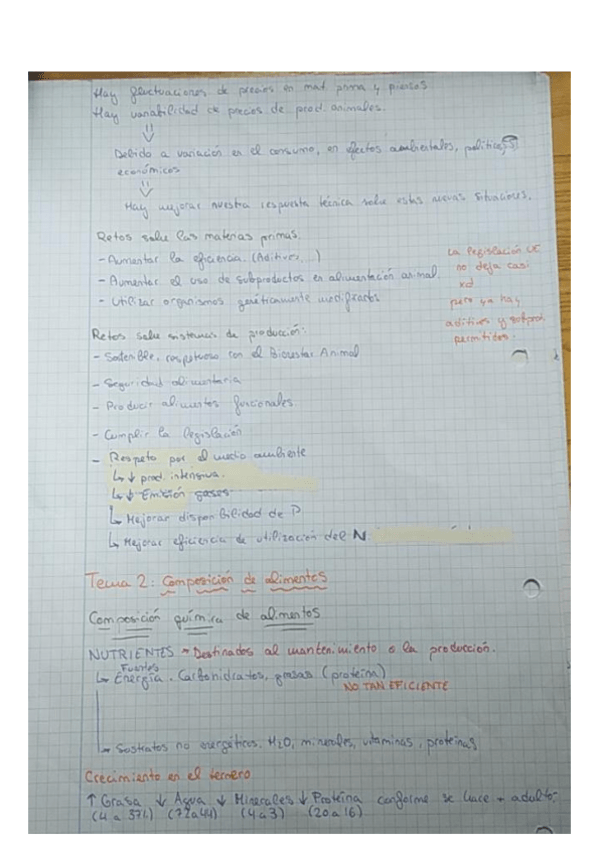 Hay fluctuaciones de precios en mat. prima y piensos
Hay variabilidad de precios de prod. animales.
⇓
Debido a variación en el consumo, en efectos ambientales, políticos,
económicos
⇓
Hay mejorar nuestra respuesta técnica sobre estas nuevas situaciones.
Retos sobre las materias primas.
- Aumentar la eficiencia. (Aditivos...)
- Aumentar el uso de subproductos en alimentación animal.
- Utilizar organismos genéticamente modificados
La legislación UE
no deja casi
xd
pero ya hay
aditivos y subprod.
permitidos.
Retos sobre sistemas de producción:
- Sostenible, respetuoso con el Bienestar Animal
- Seguridad alimentaria
- Producir alimentos funcionales
- Cumplir la legislación
- Respeto por el medio ambiente
↳ ↓ prod. intensiva.
↳ ↓ Emisión gases
↳ Mejorar disponibilidad de P
↳ Mejorar eficiencia de utilización del N.
Tema 2: Composición de alimentos
Composición química de alimentos
NUTRIENTES - Destinados al mantenimiento o la producción.
Fuentes
↳ Energía. Carbohidratos, grasas (proteína)
NO TAN EFICIENTE
↳ Sustratos no energéticos. H2O, minerales, vitaminas, proteínas
Crecimiento en el ternero
↑ Grasa ↓ Agua ↓ Minerales ↓ Proteína conforme se hace + adulto;
(4 a 37%) (72 a 44) (4 a 3) (20 a 16)